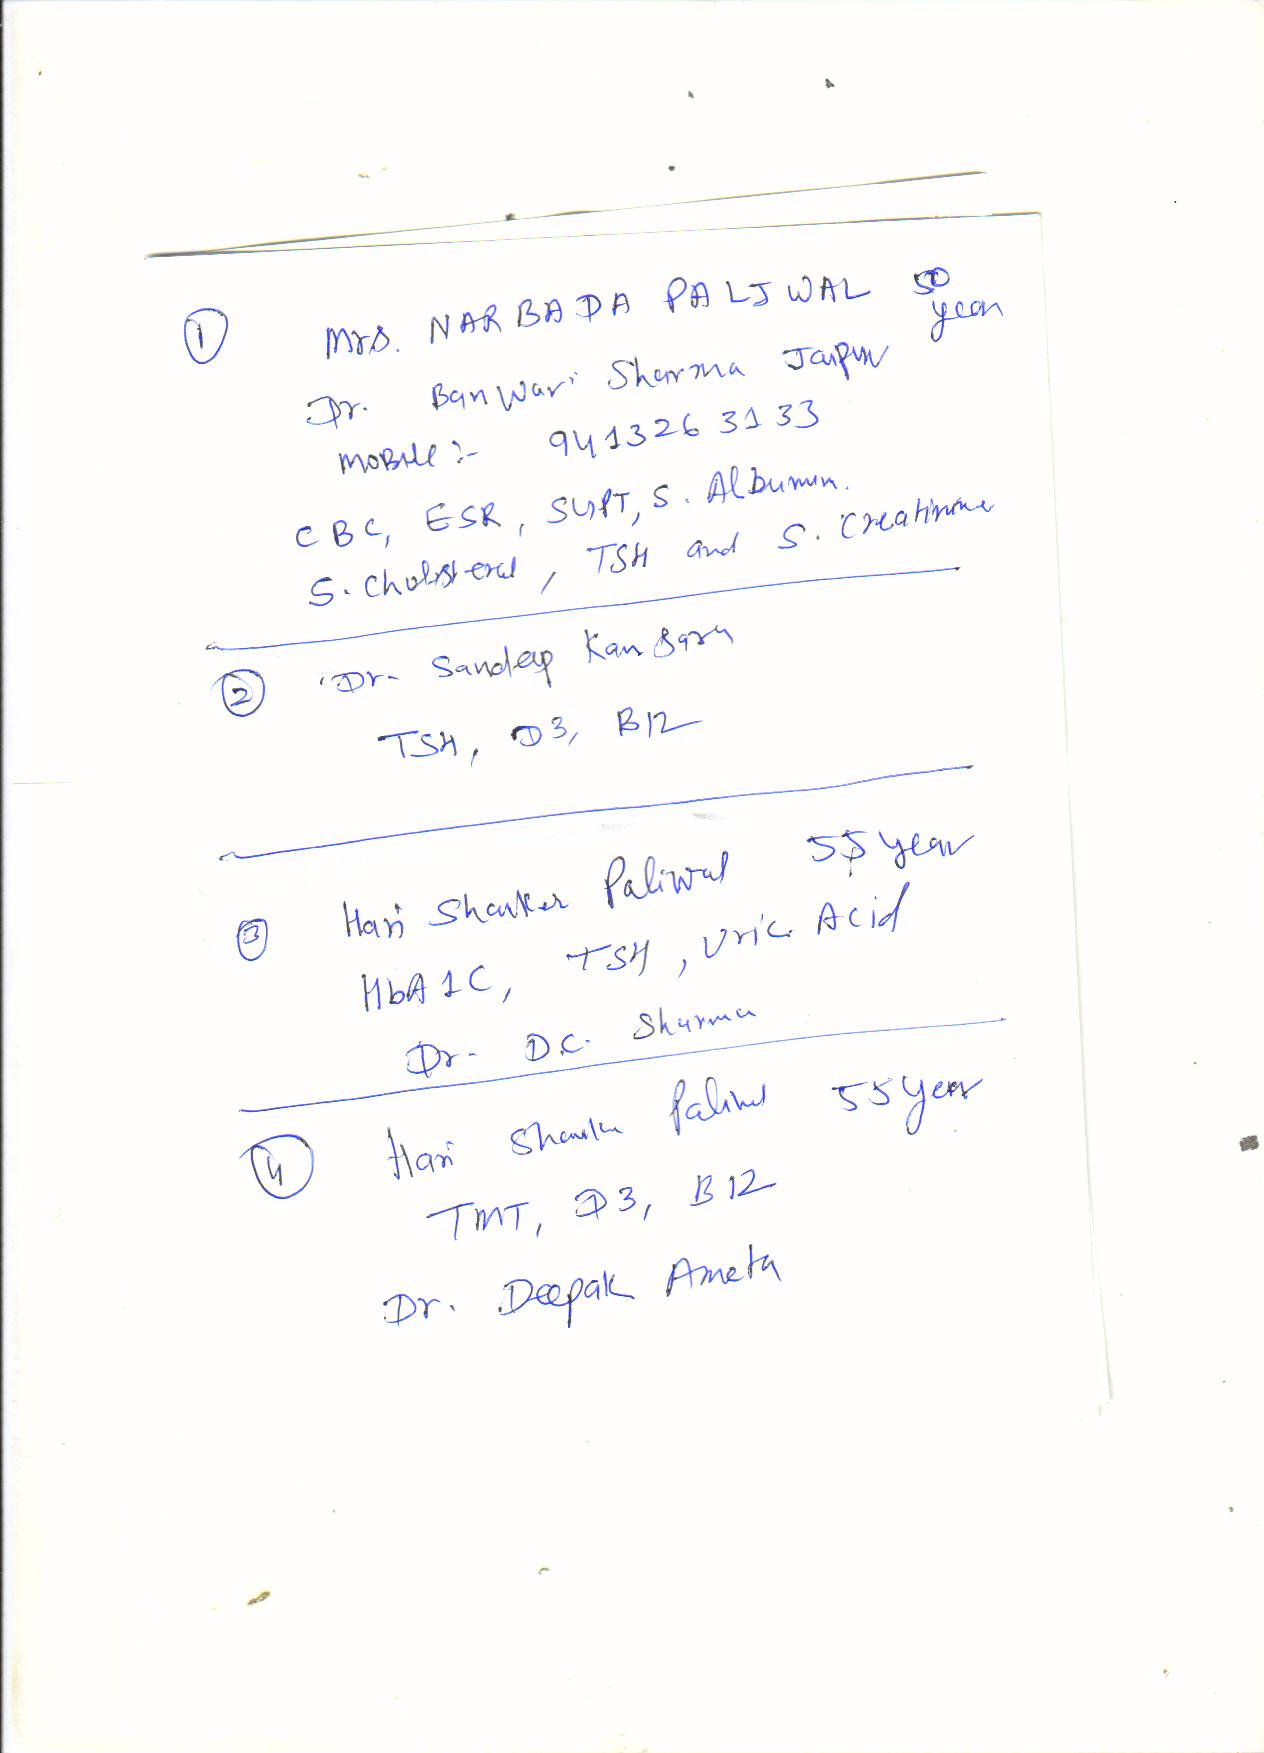 1
Mrs. NARBADA PALIWAL 50 year
Dr. Banwari Sharma Jaipur
MOBile :- 9413263133
CBC, ESR, SGPT, S. Albumin.
S. Cholisteral, TSH and S. Creatinine
2
Dr. Sandeep Kansara
TSH, D3, B12
3
Hari Shanker Paliwal 55 year
HbA1C, TSH, Uric Acid
Dr. D.C. Sharma
4
Hari Shanker Paliwal 55 year
TMT, D3, B12
Dr. Deepak Ameta